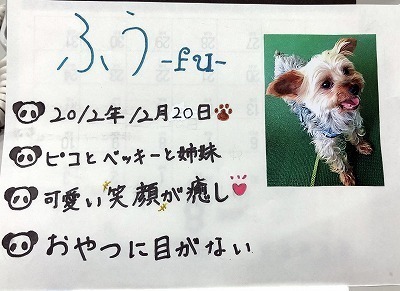 ふう -fu-
2012年12月20日
ピコとベッキーと姉妹
可愛い笑顔が癒し
おやつに目がない